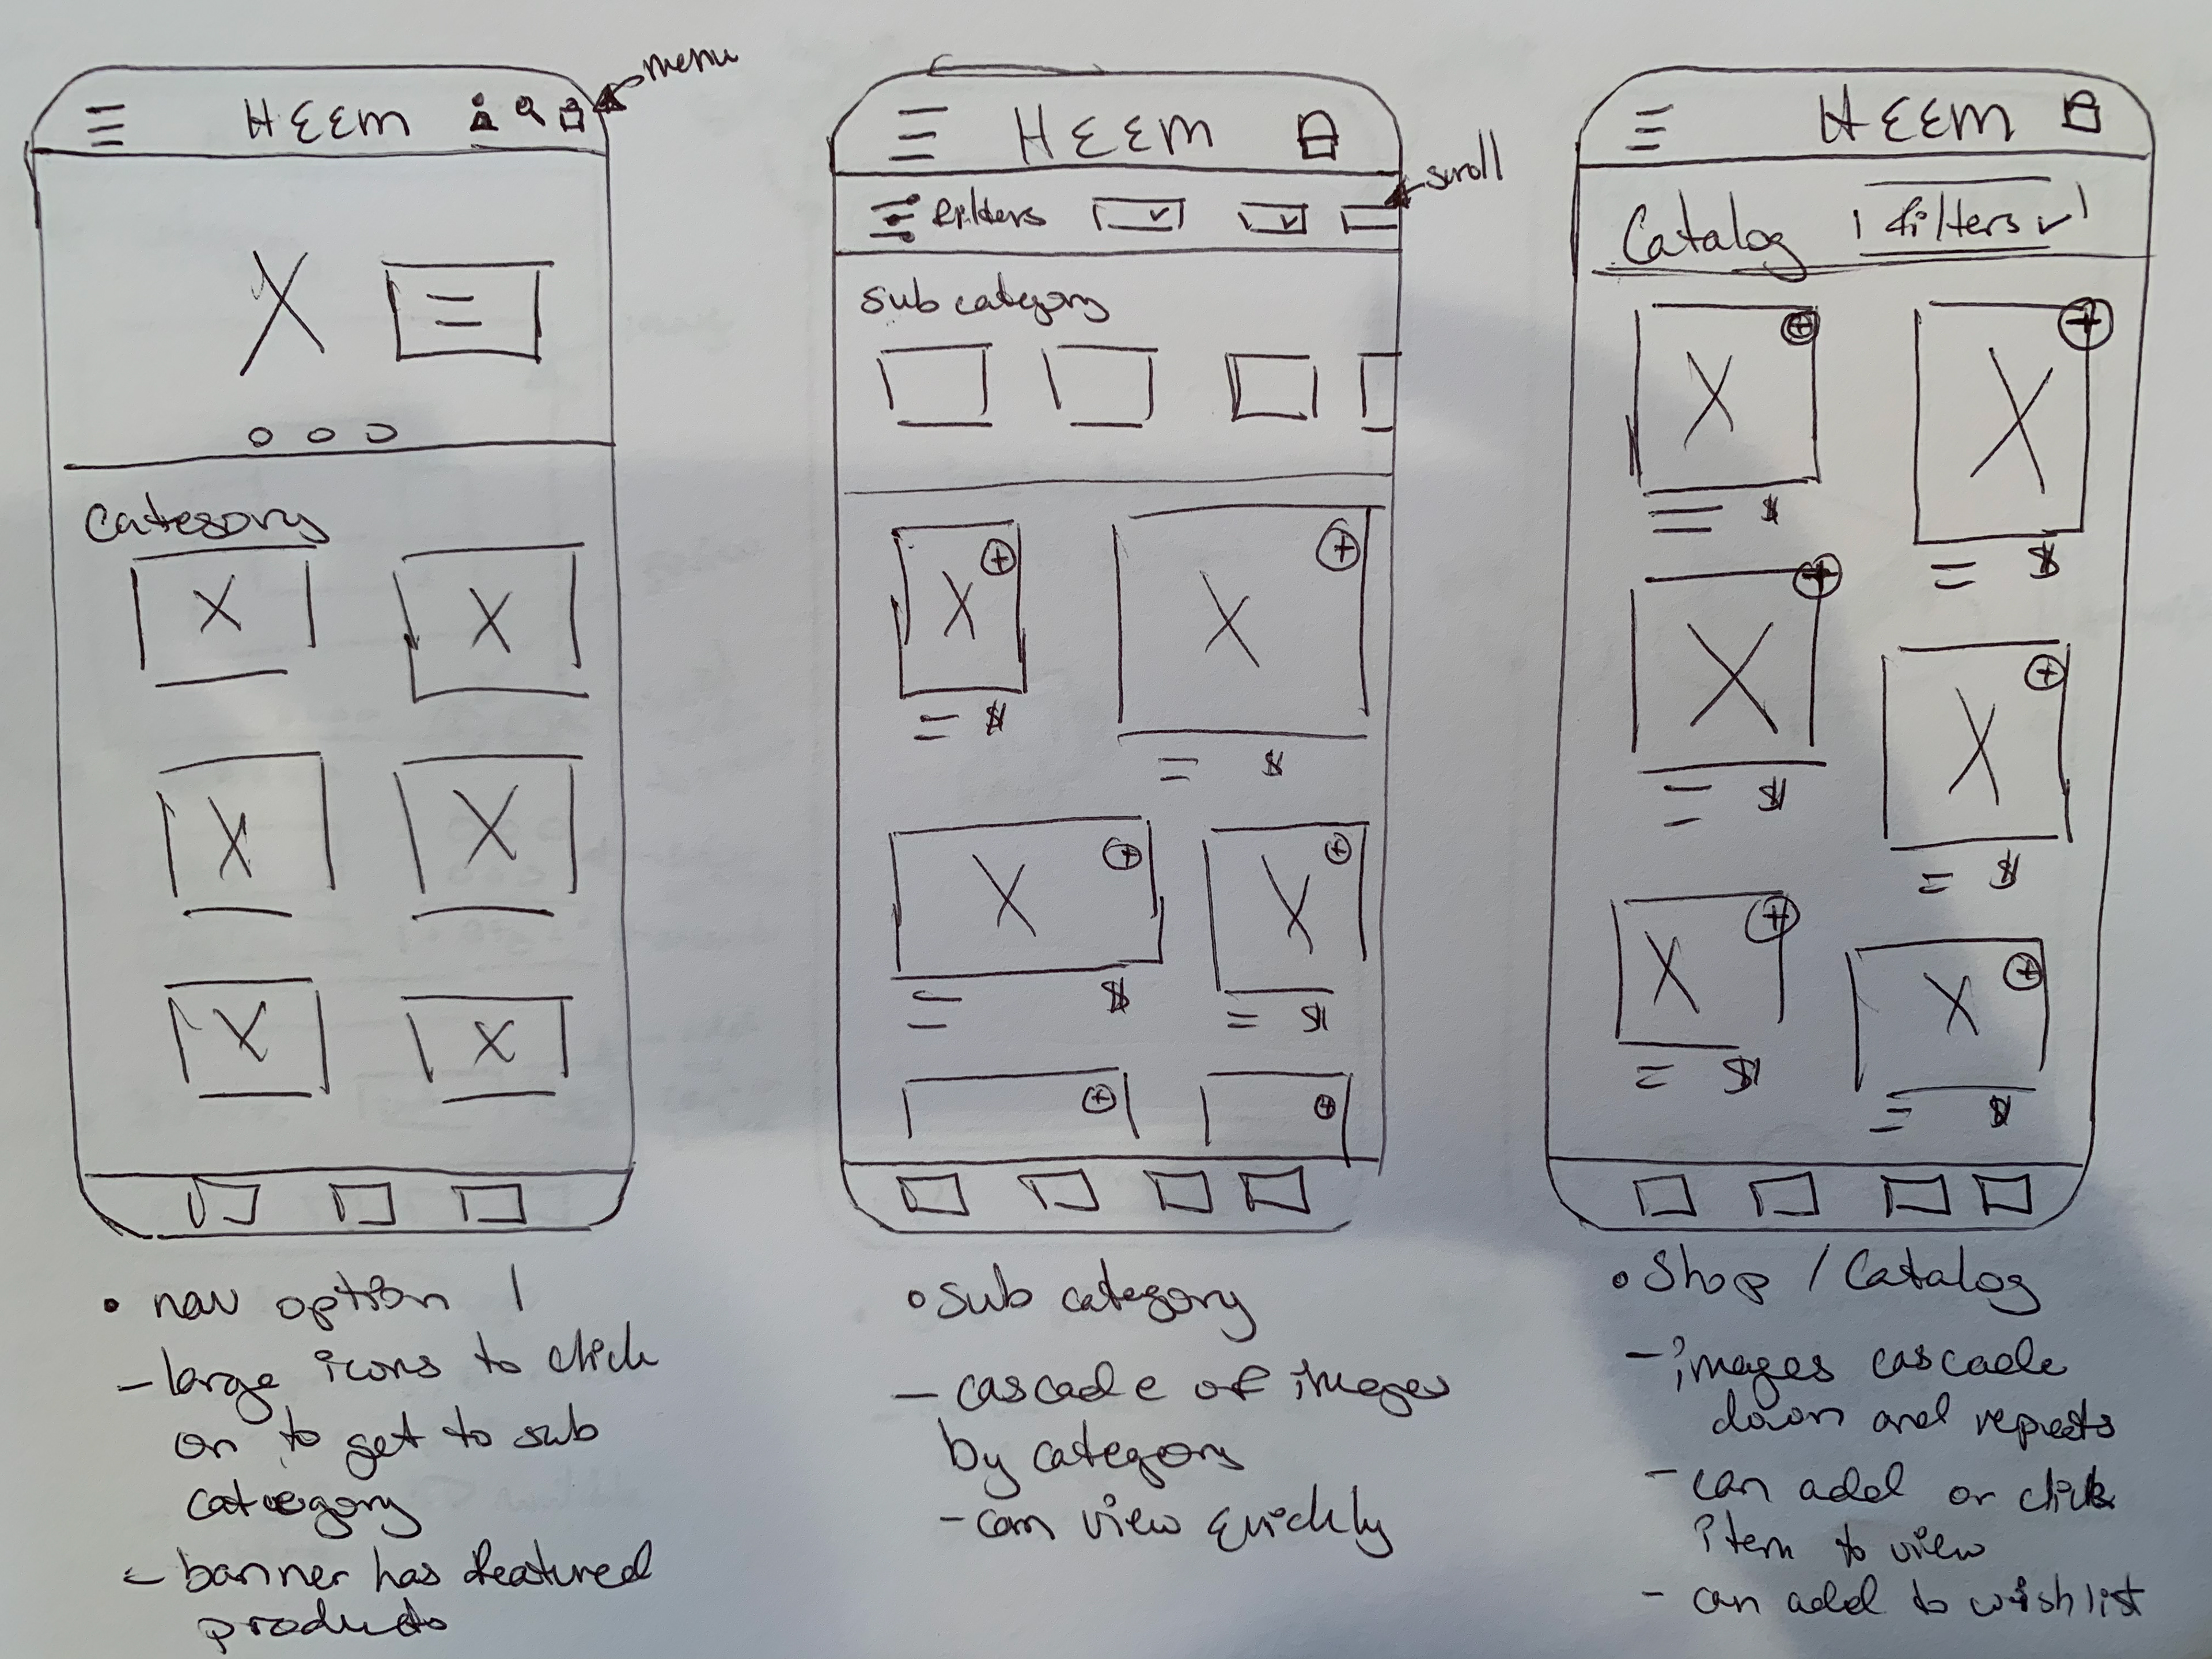 menu
HEEM
Category
HEEM
scroll
Filters
Sub category
$
$
$
$
HEEM
Catalog
filters
$
$
$
$
$
$
• nav option 1
- large icons to click
on to get to sub
category
- banner has featured
products
• Sub category
- cascade of images
by category
- can view quickly
• Shop / Catalog
- images cascade
down and repeats
- can add or click
item to view
- can add to wishlist